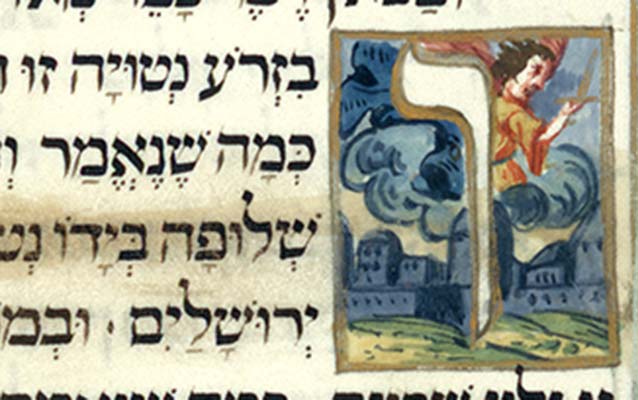 וּבִזְרֹעַ נְטוּיָה זוּ
כְּמָה שֶׁנֶּאֱמַר
שְׁלוּפָה בְּיָדוֹ נְט
יְרוּשָׁלַיִם · וּבְמ